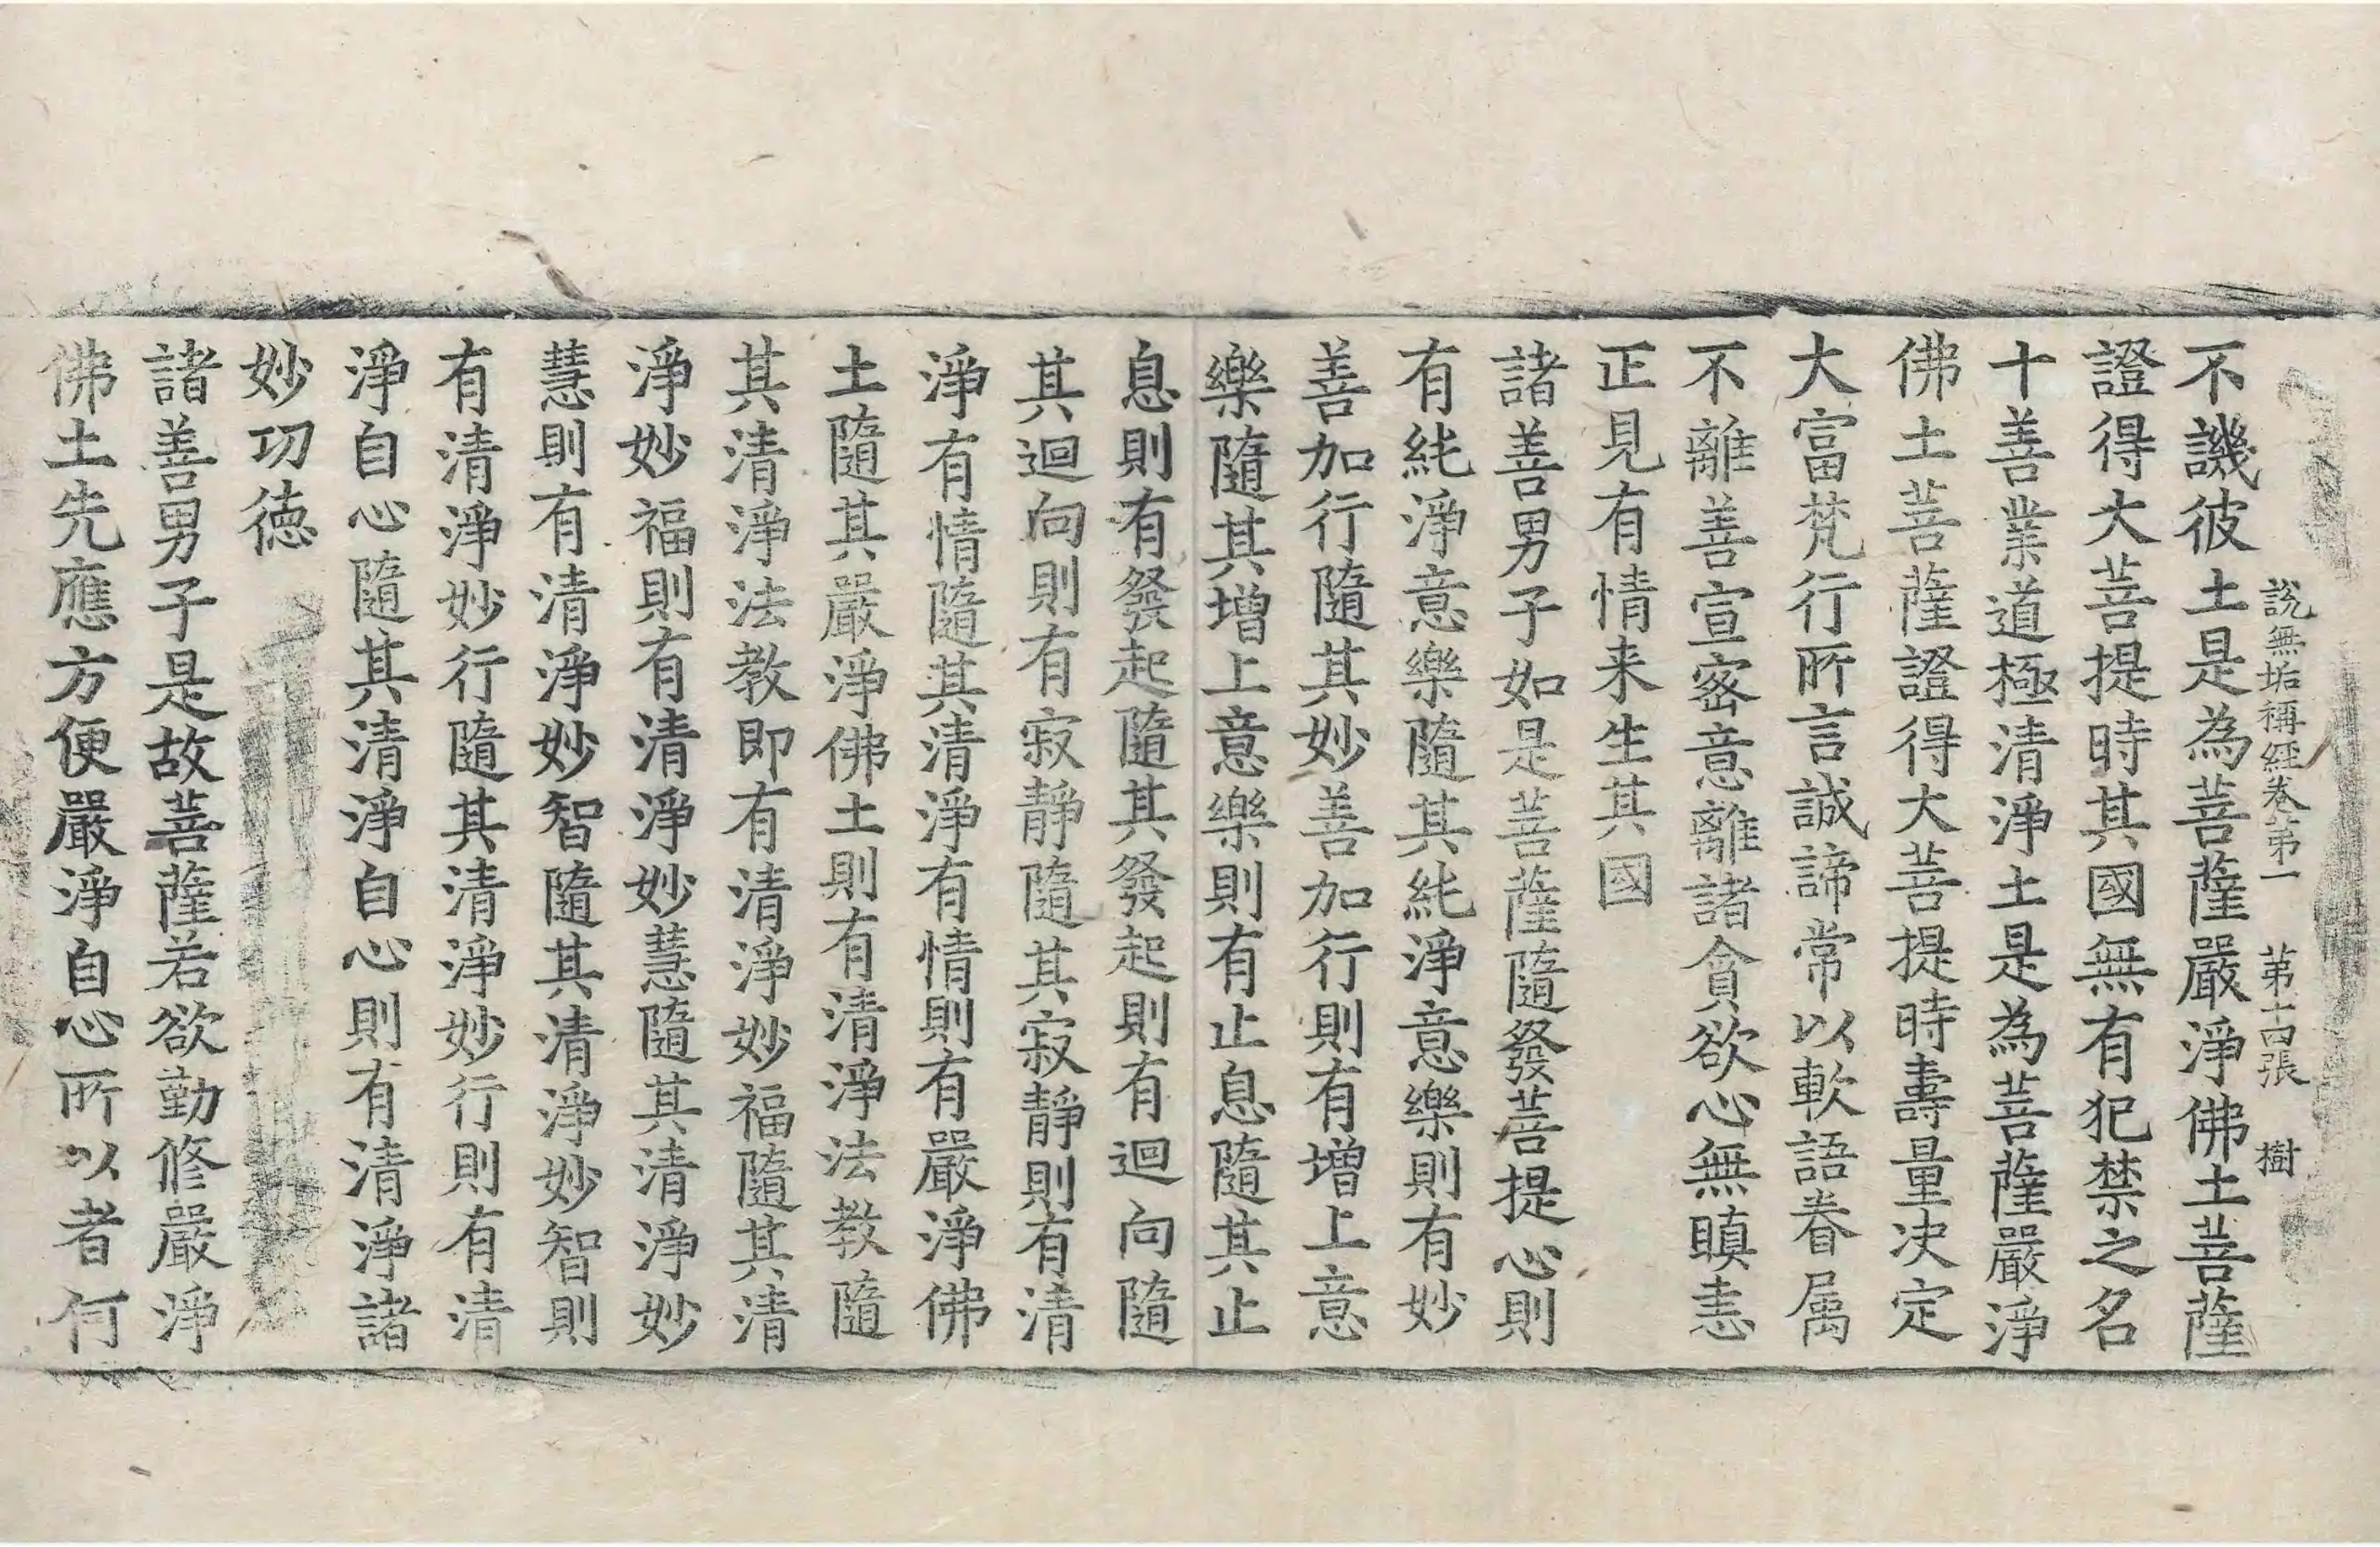 說無垢稱經卷第一 第十四張 樹
不譏彼土是為菩薩嚴淨佛土菩薩
證得大菩提時其國無有犯禁之名
十善業道極清淨土是為菩薩嚴淨
佛土菩薩證得大菩提時壽量决定
大富梵行所言誠諦常以軟語眷属
不離善宣密意離諸貪欲心無瞋恚
正見有情来生其國
諸善男子如是菩薩隨發菩提心則
有純淨意樂隨其純淨意樂則有妙
善加行隨其妙善加行則有增上意
樂隨其增上意樂則有止息隨其止
息則有發起隨其發起則有迴向隨
其迴向則有寂靜隨其寂靜則有清
淨有情隨其清淨有情則有嚴淨佛
土隨其嚴淨佛土則有清淨法教隨
其清淨法教即有清淨妙福隨其清
淨妙福則有清淨妙慧隨其清淨妙
慧則有清淨妙智隨其清淨妙智則
有清淨妙行隨其清淨妙行則有清
淨自心隨其清淨自心則有清淨諸
妙功徳
諸善男子是故菩薩若欲勤修嚴淨
佛土先應方便嚴淨自心所以者何